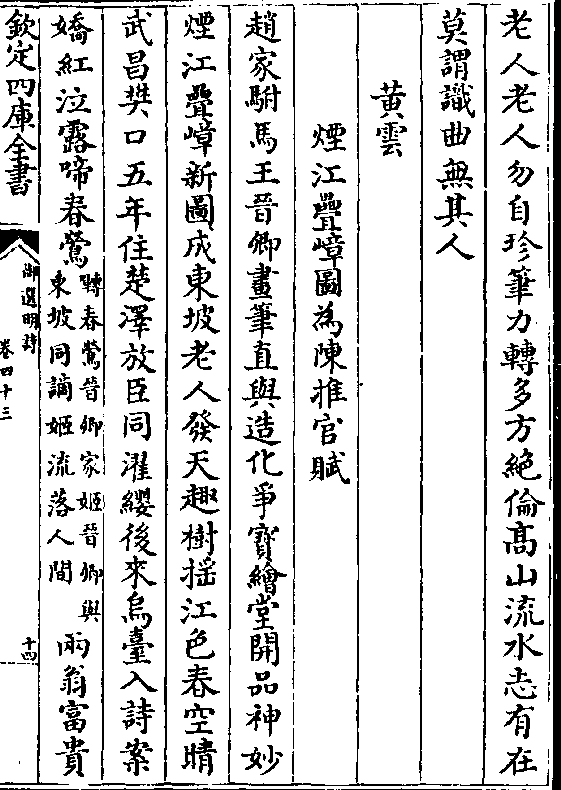 老人老人勿自珍筆力轉多方絕倫高山流水志有在
莫謂識曲無其人
黄雲
煙江疊嶂圖為陳推官賦
趙家駙馬王晉卿畫筆直與造化争寳繪堂開品神妙
煙江疊嶂新圖成東坡老人發天趣樹揺江色春空晴
武昌樊口五年住楚澤放臣同濯纓後來烏臺入詩案
嬌紅泣露啼春鶯囀春鶯晉卿家姬晉卿與東坡同謫姬流落人間兩翁富貴
欽定四庫全書
御選明詩
卷四十三
十四